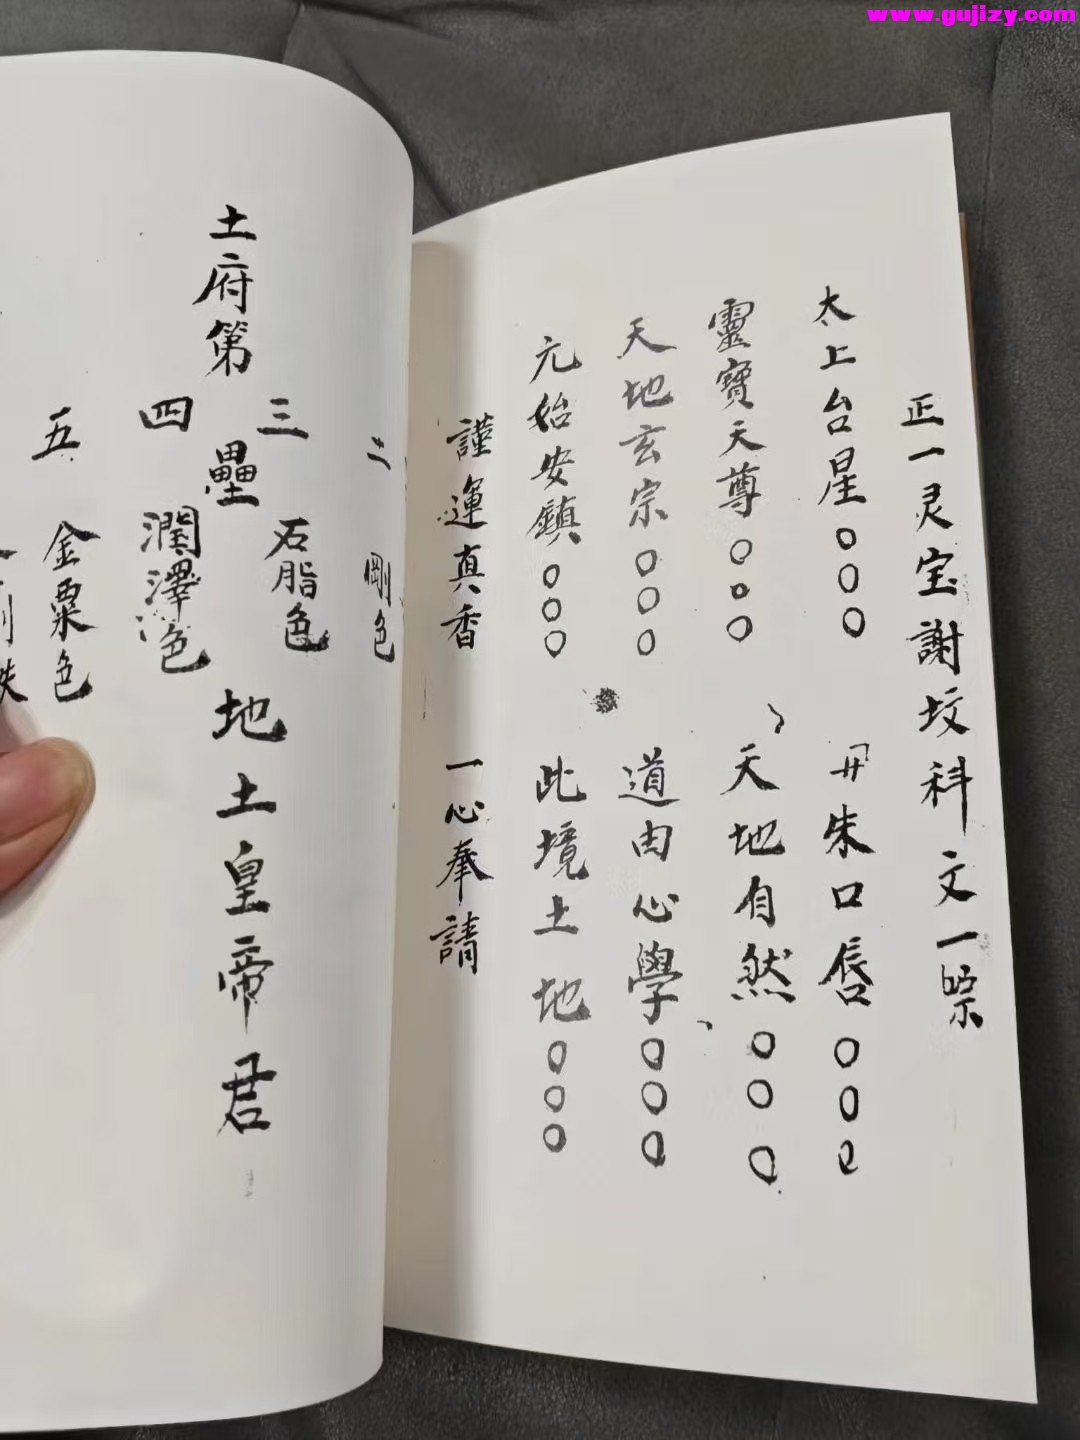 www.gujizy.com
正一灵宝謝坟科文一宗
太上台星〇〇〇 丹朱口唇〇〇〇
靈寶天尊〇〇〇 天地自然〇〇〇
天地玄宗〇〇〇 道由心學〇〇〇
元始安鎮〇〇〇 此境土地〇〇〇
謹運真香 一心奉請
二 剛色
三 石脂色
土府第 壘 地土皇帝君
四 潤澤色
五 金粟色